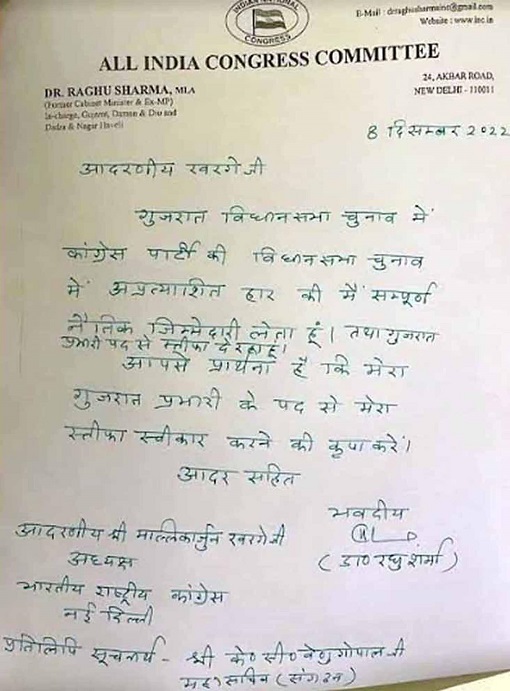 INDIAN NATIONAL
CONGRESS
E-Mail : drraghusharmainc@gmail.com
Website : www.inc.in
ALL INDIA CONGRESS COMMITTEE
DR. RAGHU SHARMA, MLA
(Former Cabinet Minister & Ex-MP)
In-charge, Gujarat, Daman & Diu and
Dadra & Nagar Haveli
24, AKBAR ROAD,
NEW DELHI - 110011
8 दिसम्बर 2022
आदरणीय खरगे जी
गुजरात विधानसभा चुनाव में
कांग्रेस पार्टी की विधानसभा चुनाव
में अप्रत्याशित हार की मैं सम्पूर्ण
नैतिक जिम्मेदारी लेता हूं। तथा गुजरात
प्रभारी पद से स्तीफा दे रहा हूं।
आपसे प्रार्थना है कि मेरा
गुजरात प्रभारी के पद से मेरा
स्तीफा स्वीकार करने की कृपा करें।
आदर सहित
भवदीय
(डा० रघु शर्मा)
आदरणीय श्री मल्लिकार्जुन खरगे जी
अध्यक्ष
भारतीय राष्ट्रीय कांग्रेस
नई दिल्ली
प्रतिलिपि सूचनार्थ - श्री के० सी० वेणुगोपाल जी
महासचिव (संगठन)